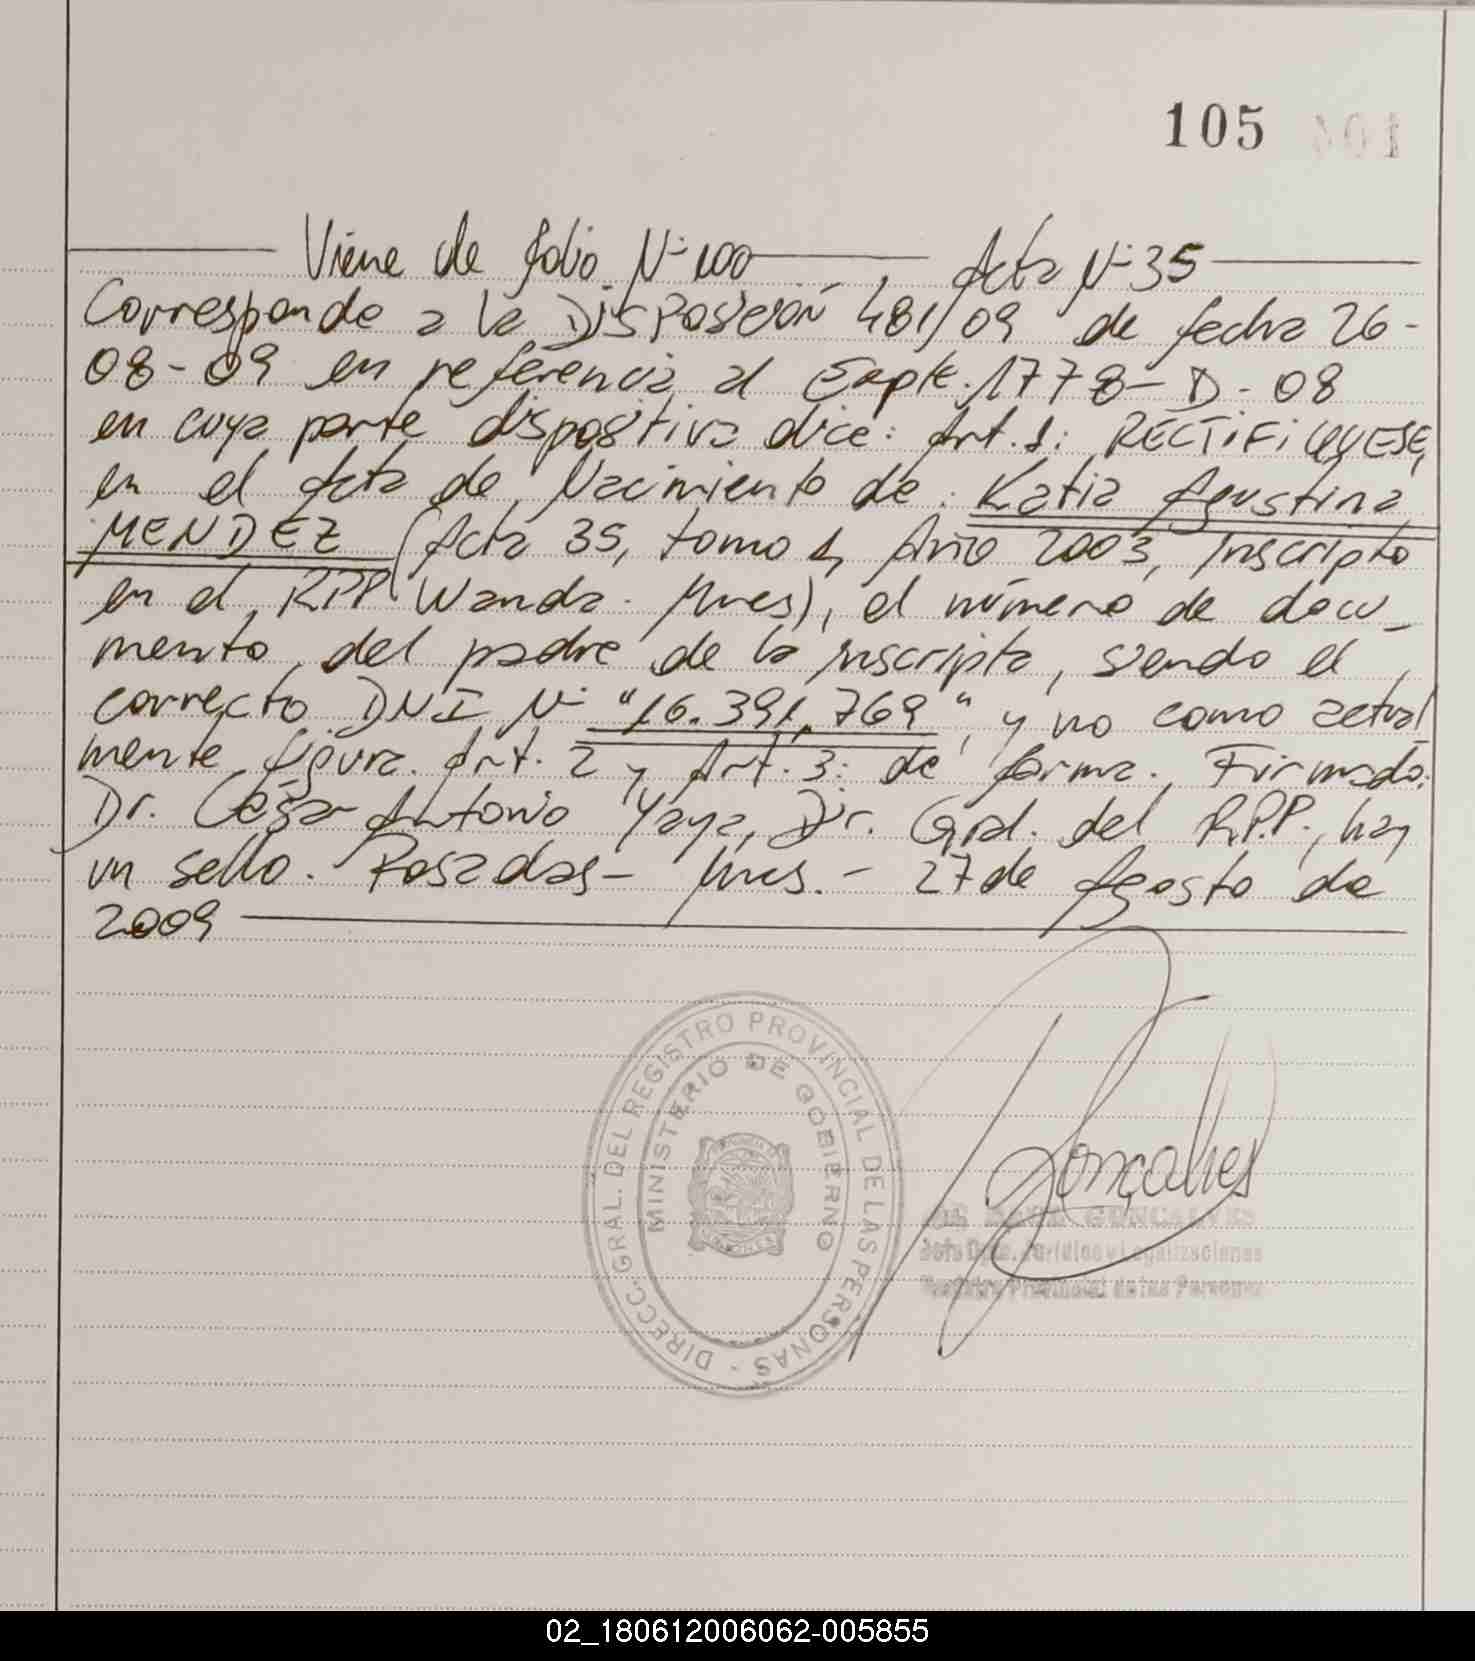 105
Viene de folio Nº 100 Acta Nº 35
Corresponde a la Disposición 481/09 de fecha 26-
08-09 en referencia al Expte. 1778-D-08
en cuya parte dispositiva dice: Art. 1: RECTIFIQUESE,
en el Acta de Nacimiento de: Katia Agustina
MENDEZ (Acta 35, tomo 1, Año 2003, inscripto
en el RPP Wanda. Mnes), el número de docu_
mento del padre de la inscripta, siendo el
correcto DNI Nº "16.391.769", y no como actual
mente figura. Art. 2 y Art. 3: de forma. Firmado:
Dr. César Antonio Yaya, Dir. Gral. del R.P.P., hay
un sello. Posadas- Mnes. - 27 de Agosto de
2009
DIRECC. GRAL. DEL REGISTRO PROVINCIAL DE LAS PERSONAS -
MINISTERIO DE GOBIERNO
MISIONES
Gonçalves
GONCALVES
Jefe Dpto. Jurídico y Legalizaciones
Registro Provincial de las Personas
02_180612006062-005855